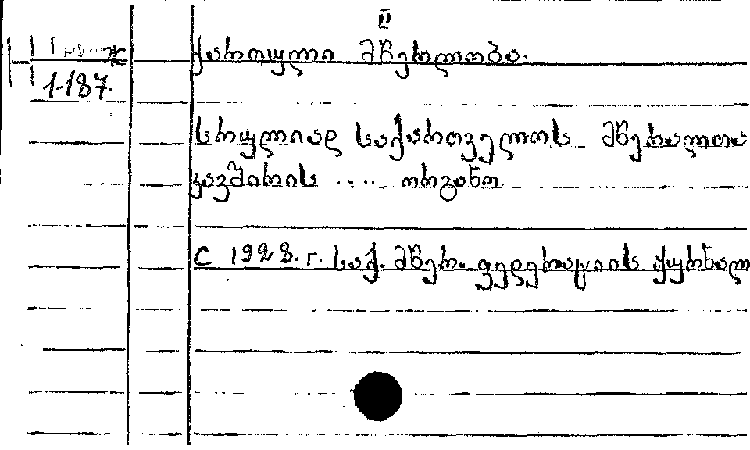 II
ქართული მწერლობა.
1-187.
სრულიად საქართველოს მწერალთა
კავშირის .... ორგანო
с 1928. г. საქ. მწერ. ფედერაციის ჟურნალ